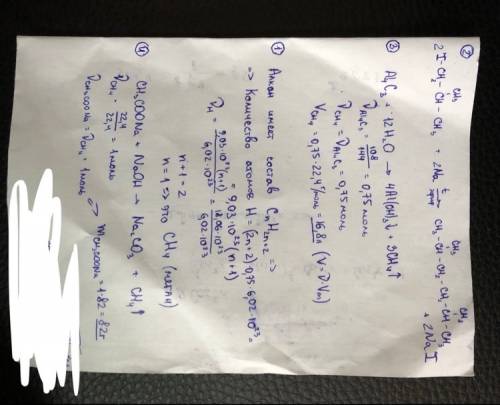 ②          CH₃                                    CH₃                      CH₃
2I-CH₂-CH-CH₃ + 2Na → CH₃-CH-CH₂-CH₂-CH-CH₃ + 2NaI
③ Al₄C₃ + 12H₂O → 4Al(OH)₃↓ + 3CH₄↑
νAl₄C₃ = 108/144 = 0,75 моль
νCH₄ = νAl₄C₃ = 0,75 моль
VCH₄ = 0,75·22,4 л/моль = 16,8л (V=ν·Vm)
① Алкан имеет состав CₙH₂ₙ₊₂ =>
=> Количество атомов H = (2n+2)·0,75·6,02·10²³ =
= 9,03·10²³(n+1)
νH = 9,03·10²³(n+1)/6,02·10²³ = 18,06·10²³/6,02·10²³
n+1=2
n=1 => это CH₄ (метан)
④ CH₃COONa + NaOH → Na₂CO₃ + CH₄↑
νCH₄ = 22,4/22,4 = 1 моль
νCH₃COONa = νCH₄ = 1 моль => mCH₃COONa = 1·82 = 82г